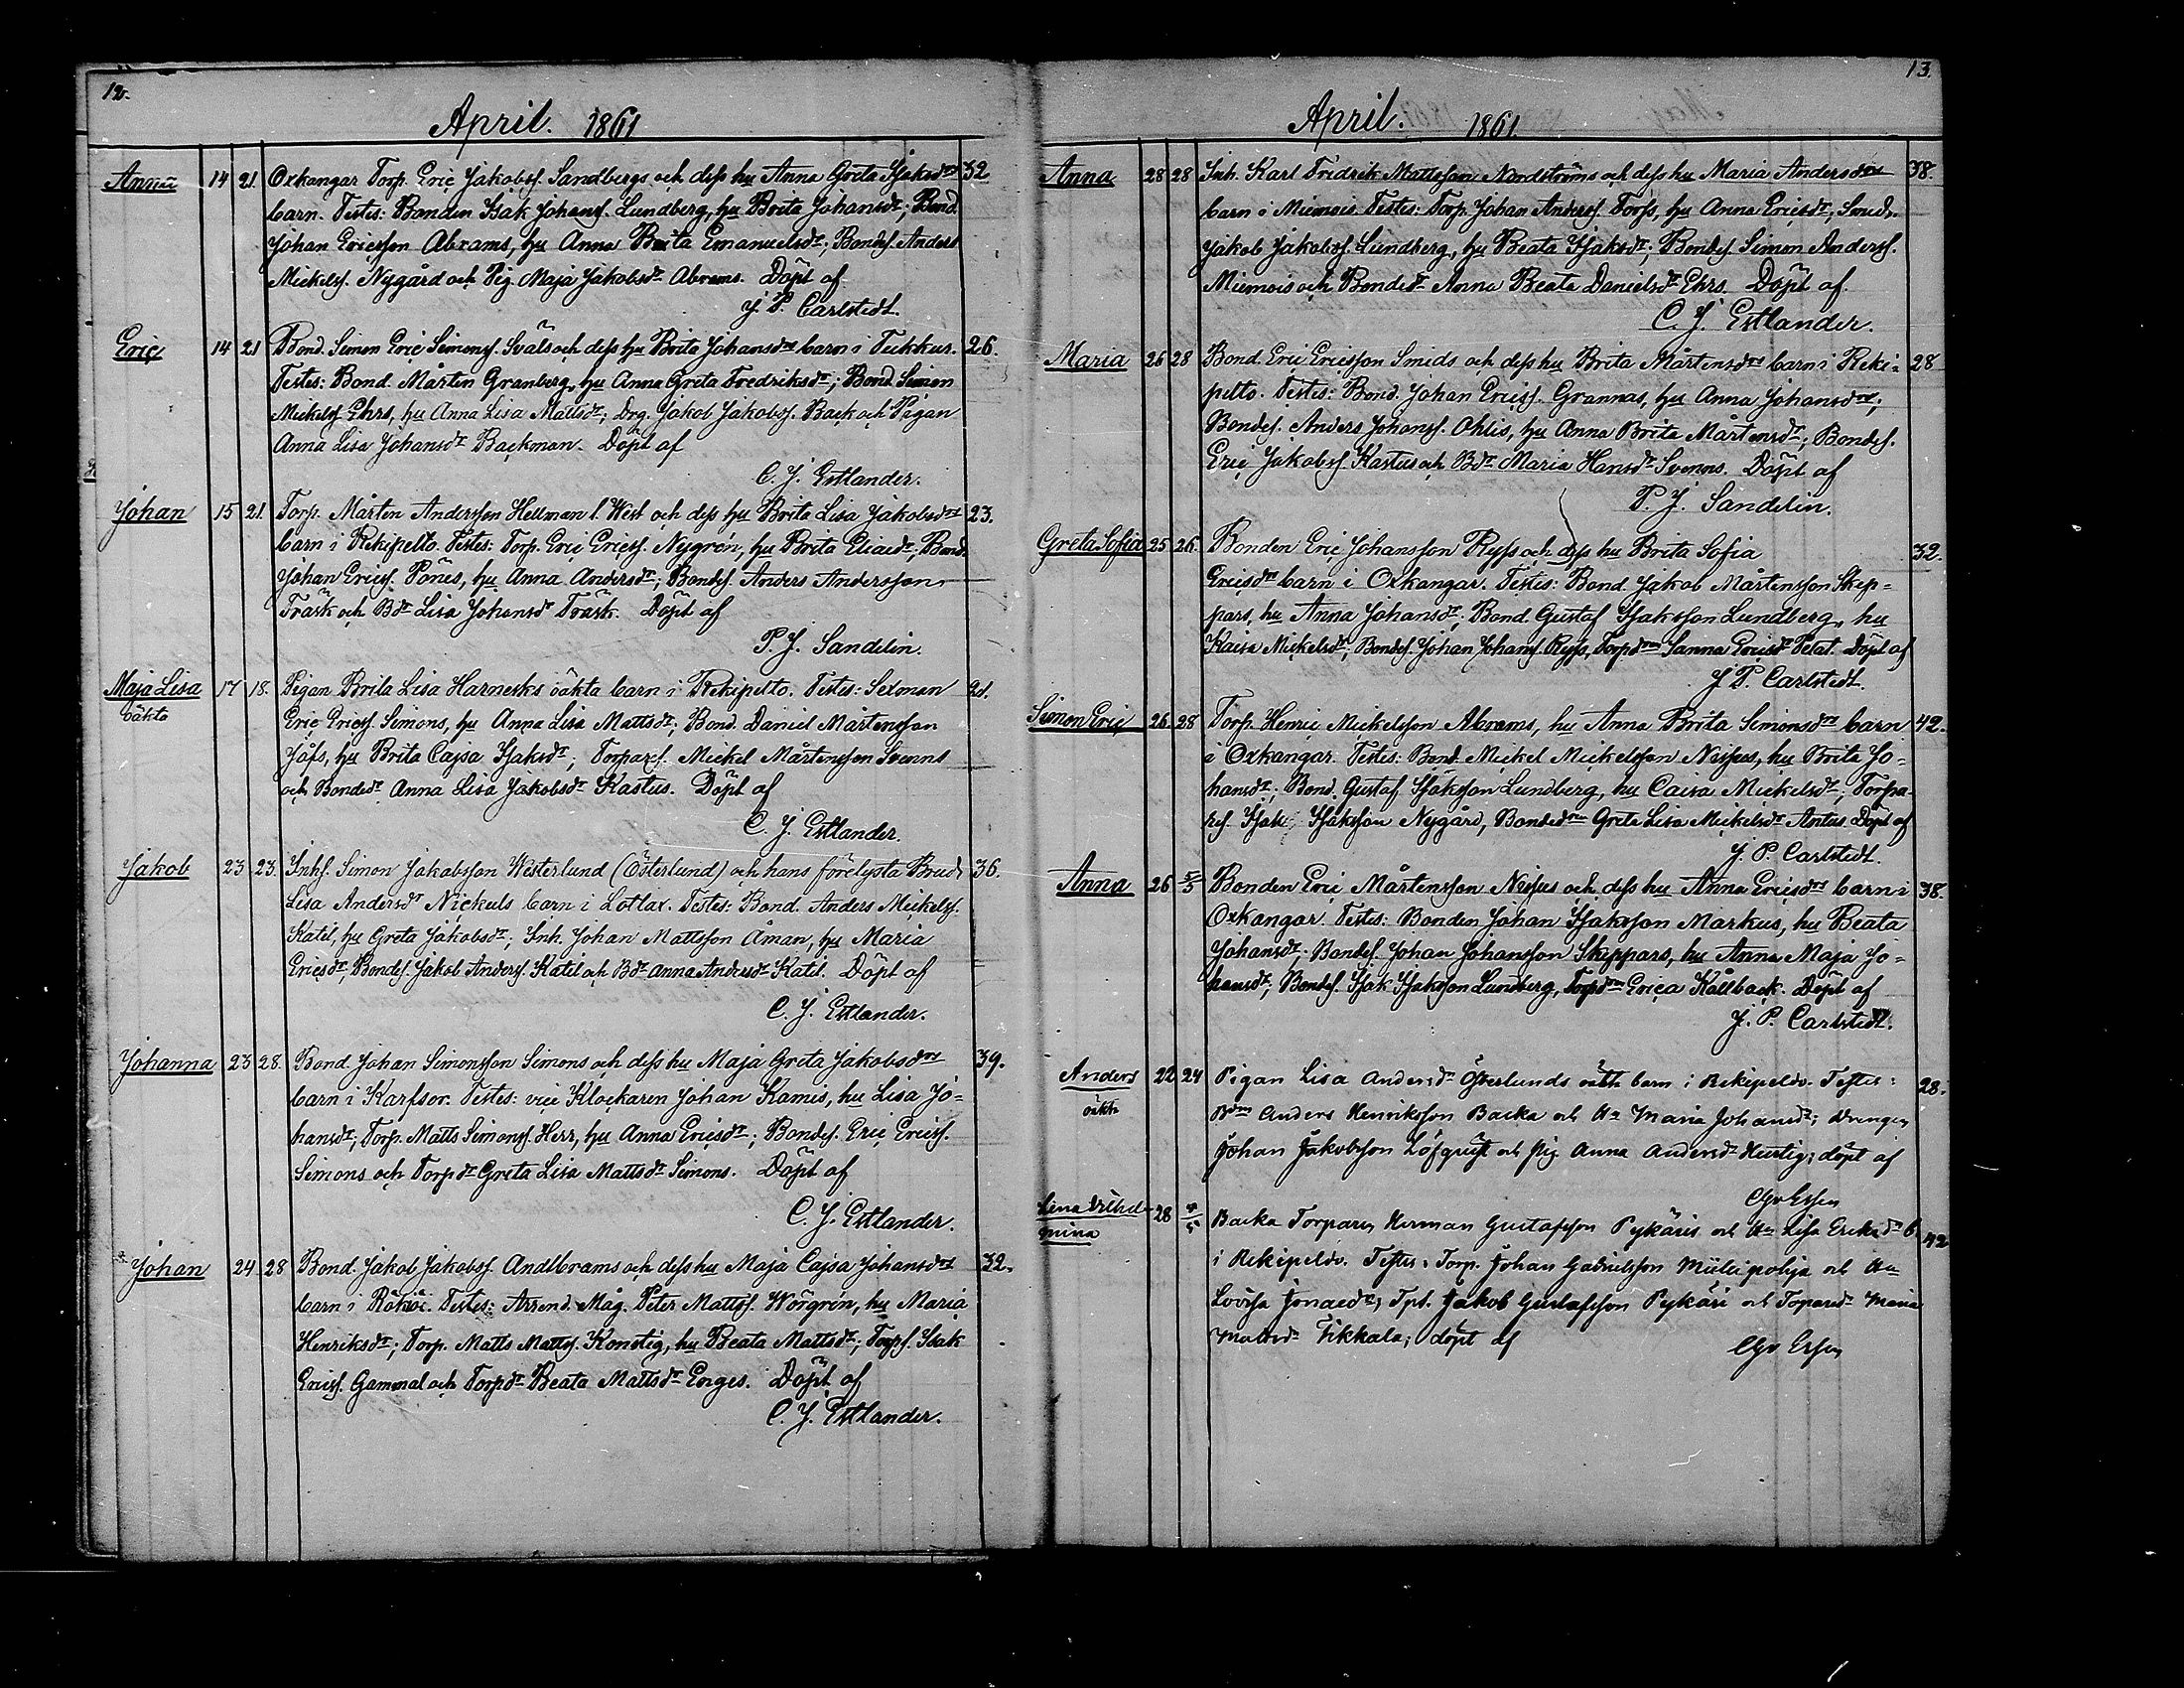 12.
April. 1861
Anna 14 21 Oxkangar Torp. Eric Jakobss. Sandbergs och dess hu Anna Greta Isaksdrs 32
barn. Testes: Bonden Isak Johanss. Lundberg, hu Brita Johansdr; Bond.
Johan Ericsson Abrams, hu Anna Brita Emanuelsdr; Bondes. Anders
Mickelss. Nygård och Pig. Maja Jakobsdr Abrams. Döpt af
J. P. Carlstedt.
Eric 14 21 Bond. Simon Eric Simonss. Svals och dess hu Brita Johansdrs barn i Teikkur. 26.
Testes: Bond. Mårten Granberg, hu Anna Greta Fredriksdr; Bond. Simon
Mickelss. Ehrs, hu Anna Lisa Mattsdr; Drg. Jakob Jakobss. Back och Pigan
Anna Lisa Johansdr Backman. Döpt af
C. J. Estlander.
Johan 15 21. Torp. Mårten Andersson Hellman l. West och dess hu Brita Lisa Jakobsdrs 23.
barn i Rekipelto. Testes: Torp. Eric Ericss. Nygrén, hu Brita Eliaedr; Bond.
Johan Ericss. Pones, hu Anna Andersdr; Bondes. Anders Andersson
Träsk och Bdr Lisa Johansdr Träsk. Döpt af
P. J. Sandelin.
Maja Lisa 17 18. Pigan Brita Lisa Harnesks oäkta barn i Rekipelto. Testes: Sexman 21.
oäkta
Eric Ericss. Simons, hu Anna Lisa Mattsdr; Bond. Daniel Mårtensson
Jåfs, hu Brita Cajsa Isaksdr; Torpares. Mickel Mårtensson Svenns
och Bondedr Anna Lisa Jakobsdr Kastus. Döpt af
C. J. Estlander.
Jakob 23 23. Inhs. Simon Jakobsson Westerlund (Österlund) och hans förelysta Brud 36.
Lisa Andersdr Nickuls barn i Lotlax. Testes: Bond. Anders Mickelss.
Katil, hu Greta Jakobsdr; Inh. Johan Mattsson Åman, hu Maria
Ericsdr; Bondes. Jakob Anderss. Katil och Bdr Anna Andersdr Katil. Döpt af
C. J. Estlander.
Johanna 23 28. Bond. Johan Simonsson Simons och dess hu Maja Greta Jakobsdrs 39.
barn i Karfsor. Testes: vice Klockaren Johan Kamis, hu Lisa Jo=
hansdr; Torp. Matts Simonss. Herr, hu Anna Ericsdr; Bondes. Eric Ericss.
Simons och Torpdr Greta Lisa Mattsdr Simons. Döpt af
C. J. Estlander.
Johan 24 28 Bond. Jakob Jakobss. Andlbrams och dess hu Maja Cajsa Johansdrs 32.
barn i Rökiö. Testes: Arrend. Måg. Peter Mattss. Wörgrén, hu Maria
Henriksdr; Torp. Matts Mattss. Konstig, hu Beata Mattsdr; Torps. Isak
Ericss. Gammal och Torpdr Beata Mattsdr Enges. Döpt af
C. J. Estlander.
13.
April. 1861.
Anna 28 28 Inh. Karl Fredrik Mattsson Nordströms och dess hu Maria Andersdrs 38.
barn i Miemois. Testes: Torp. Johan Anderss. Torss, hu Anna Ericsdr;
Jakob Jakobss. Lundberg, hu Beata Isaksdr; Bondes. Simon Anderss.
Miemois och Bondedr Anna Beata Danielsdr Ehrs. Döpt af.
C. J. Estlander.
Maria 26 28 Bond. Eric Ericsson Smids och dess hu Brita Mårtensdrs barn i Reki= 28
pelto. Testes: Bond. Johan Ericss. Grannas, hu Anna Johansdr;
Bondes. Anders Johanss. Ohlis, hu Anna Brita Mårtensdr; Bondes.
Eric Jakobss. Kastus och Bdr Maria Hansdr Svenns. Döpt af
P. J. Sandelin.
Greta Sofia 25 26. Bonden Eric Johansson Ryss och dess hu Brita Sofia 32.
Ericsdrs barn i Oxkangar. Testes: Bond. Jakob Mårtensson Skep=
pars, hu Anna Johansdr; Bond. Gustaf Isaksson Lundberg, hu
Kaisa Mickelsdr; Bondes. Johan Johanss. Ryss, Torpdrn Sanna Ericsdr Pelat. Döpt af
J. P. Carlstedt.
Simon Eric 26 28 Torp. Henric Mickelsson Abrams, hu Anna Brita Simonsdrs barn 42.
i Oxkangar. Testes: Bond. Mickel Mickelsson Nissus, hu Brita Jo=
hansdr; Bond. Gustaf Isaksson Lundberg, hu Caisa Mickelsdr; Torpa=
res. Isak Isaksson Nygård, Bondedrn Greta Lisa Mickelsdr Antus. Döpt af
J. P. Carlstedt.
Anna 26 5/5 Bonden Eric Mårtensson Nissus och dess hu Anna Ericsdrs barn i 38.
Oxkangar. Testes: Bonden Johan Isaksson Markus, hu Beata
Johansdr; Bondes. Johan Johansson Skeppars, hu Anna Maja Jo=
hansdr; Bondes. Isak Isaksson Lundberg, Torpdrn Erica Källback. Döpt af
J. P. Carlstedt.
Anders 22 24 Pigan Lisa Andersdr Österlunds oäkta barn i Rekipeldo. Testes: 28.
oäkta
Anders Henriksson Backa och Hu Maria Johansdr; Drengen
Johan Jakobsson Löfqvist och Pig Anna Andersdr Hurtig; döpt af
CGv Essen
Lina Vilhel= 28 Backa Torparen Herman Gustafsson Pykäris och Hu Lisa Ericsdr b. 42
mina
i Rekipeldo. Testes: Torp. Johan Gabrielsson Myllypohja och Hu
Lovisa Jonaedr; Tps. Jakob Gustafsson Pykäri och Toparedr Maria
Tikkala; döpt af
CGv Essen